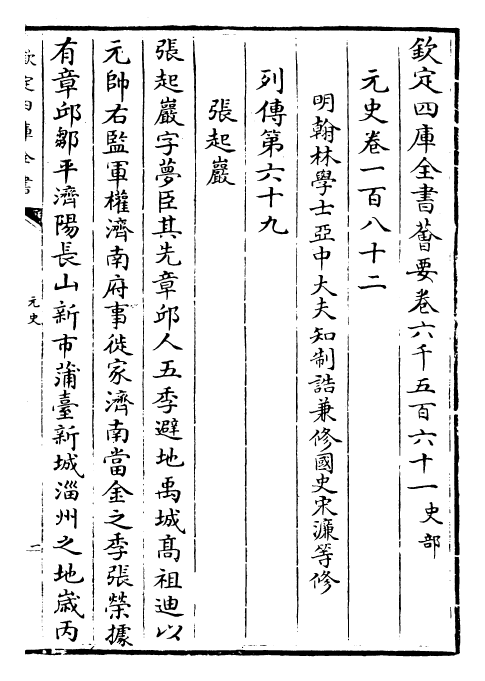 欽定四庫全書薈要卷六千五百六十一史部
元史卷一百八十二
明翰林學士亞中大夫知制誥兼修國史宋濂等修
列傳第六十九
張起巖
張起巖字夢臣其先章邱人五季避地禹城髙祖迪以
元帥右監軍權濟南府事徙家濟南當金之季張榮據
有章邱鄒平濟陽長山新市蒲臺新城淄州之地嵗丙
欽定四庫全書
元史